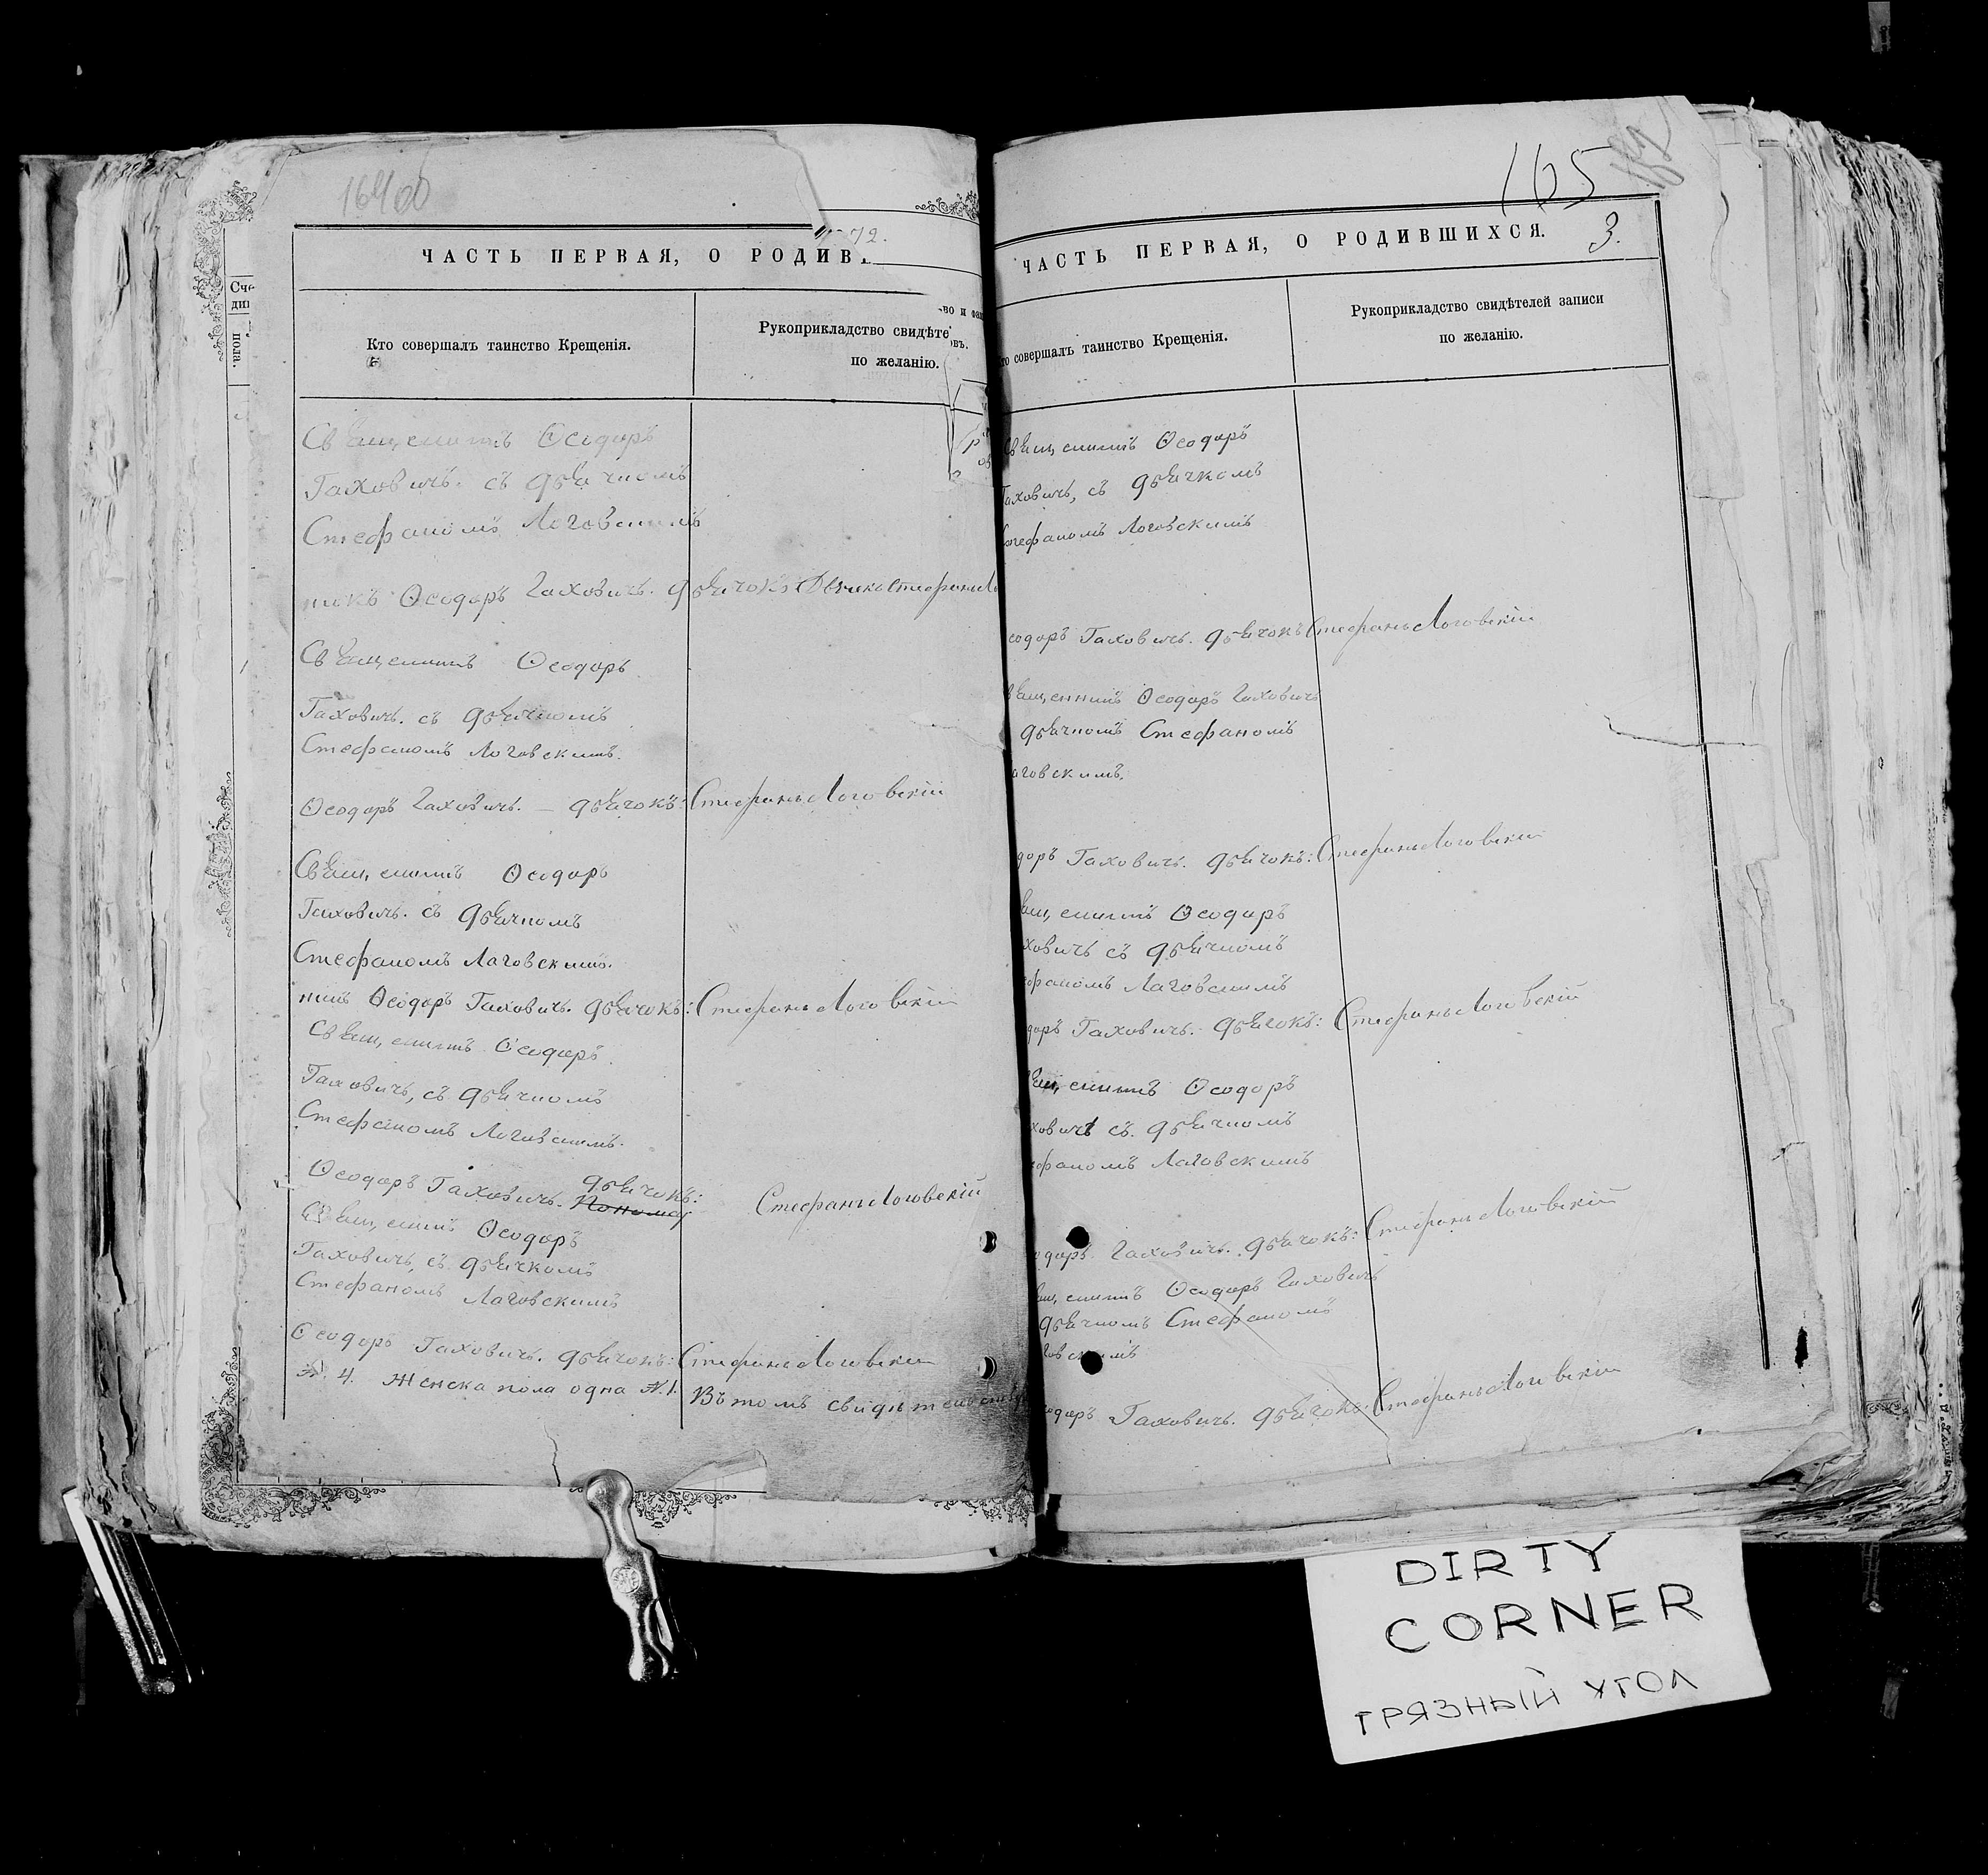 165
3.
72.
ЧАСТЬ ПЕРВАЯ, О РОДИВ
Кто совершалъ таинство Крещенія.
Рукоприкладство свидѣте
по желанію.
Священникъ Ѳеодоръ
Гаховичъ. съ дьячкомъ
Стефаномъ Логовскимъ
никъ Ѳеодоръ Гаховичъ. дьячокъ
Священникъ Ѳеодоръ
Гаховичъ. съ дьячкомъ
Стефаномъ Логовскимъ.
Ѳеодоръ Гаховичъ. — дьячокъ: Стефанъ Логовскій
Священникъ Ѳеодоръ
Гаховичъ. съ дьячкомъ
Стефаномъ Лаговскимъ.
никъ Ѳеодоръ Гаховичъ. дьячокъ: Стефанъ Логовскій
Священникъ Ѳеодоръ
Гаховичъ, съ дьячкомъ
Стефаномъ Логовскимъ.
Ѳеодоръ Гаховичъ. Пономар дьячокъ: Стефанъ Логовскій
Священникъ Ѳеодоръ
Гаховичъ, съ дьячкомъ
Стефаномъ Лаговскимъ
Ѳеодоръ Гаховичъ. дьячокъ: Стефанъ Логовскій
4. Женска пола одна №1. Въ томъ
ЧАСТЬ ПЕРВАЯ, О РОДИВШИХСЯ.
то совершалъ таинство Крещенія.
Рукоприкладство свидѣтелей записи
по желанію.
Священникъ Ѳеодоръ
Гаховичъ, съ дьячкомъ
Стефаномъ Логовскимъ
еодоръ Гаховичъ. дьячокъ Стефанъ Логовскій
вященникъ Ѳеодоръ Гаховичъ
дьячкомъ Стефаномъ
аговскимъ.
доръ Гаховичъ. дьячокъ: Стефанъ Логовскій
ященникъ Ѳеодоръ
ховичъ съ дьячкомъ
фаномъ Лаговскимъ
доръ Гаховичъ. дьячокъ: Стефанъ Логовскій
ященникъ Ѳеодоръ
ховичъ съ. дьячкомъ
фаномъ Лаговскимъ
одоръ Гаховичъ. дьячокъ: Стефанъ Логовскій
ященникъ Ѳеодоръ Гаховичъ
дьячкомъ Стефаномъ
говскимъ
одоръ Гаховичъ. дьячокъ: Стефанъ Логовскій
DIRTY
CORNER
ГРЯЗНЫЙ УГОЛ